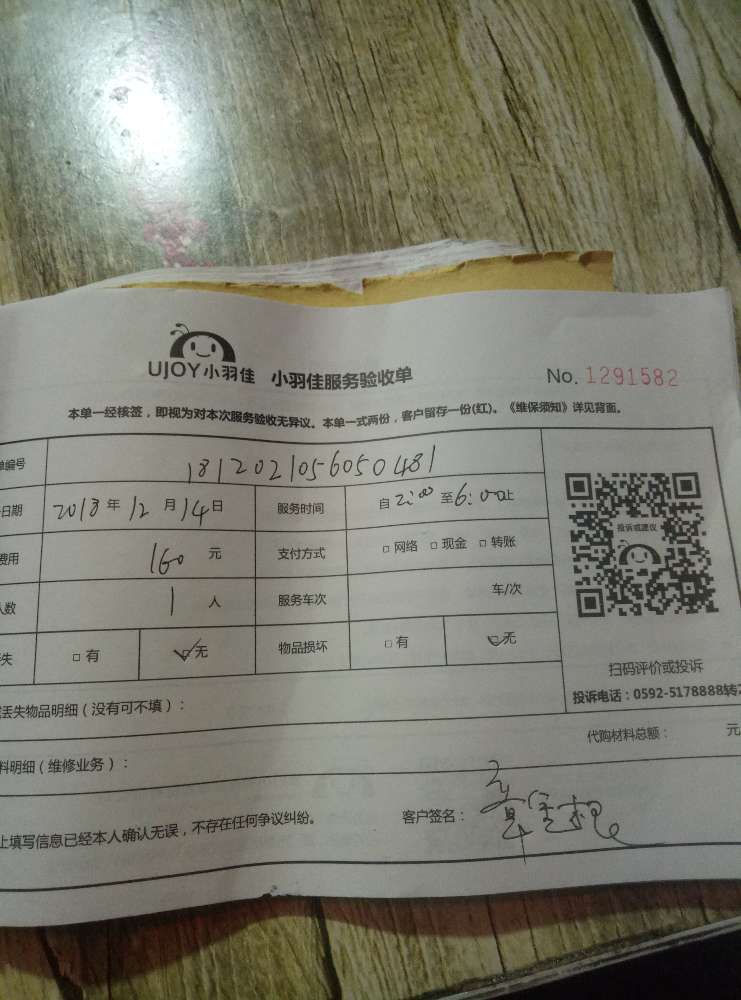 UJOY小羽佳 小羽佳服务验收单 No. 1291582
本单一经核签，即视为对本次服务验收无异议。本单一式两份，客户留存一份(红)。《维保须知》详见背面。
单编号 1812021056050481
日期 2018年12月14日 服务时间 自2:00至6:00止
费用 160元 支付方式 □网络 □现金 □转账
人数 1人 服务车次 车/次
失 □有 ☑无 物品损坏 □有 ☑无
投诉或建议
扫码评价或投诉
投诉电话：0592-5178888转2
丢失物品明细（没有可不填）：
代购材料总额： 元
料明细（维修业务）：
上填写信息已经本人确认无误，不存在任何争议纠纷。 客户签名：